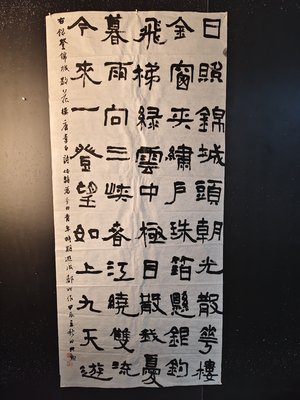 日照錦城頭朝光散華樓
金窗夾繡戶珠箔懸銀鉤
飛梯綠雲中極目散我憂
暮雨向三峽春江繞雙流
今來一登望如上九天遊
右錄登錦城散花樓唐李白詩